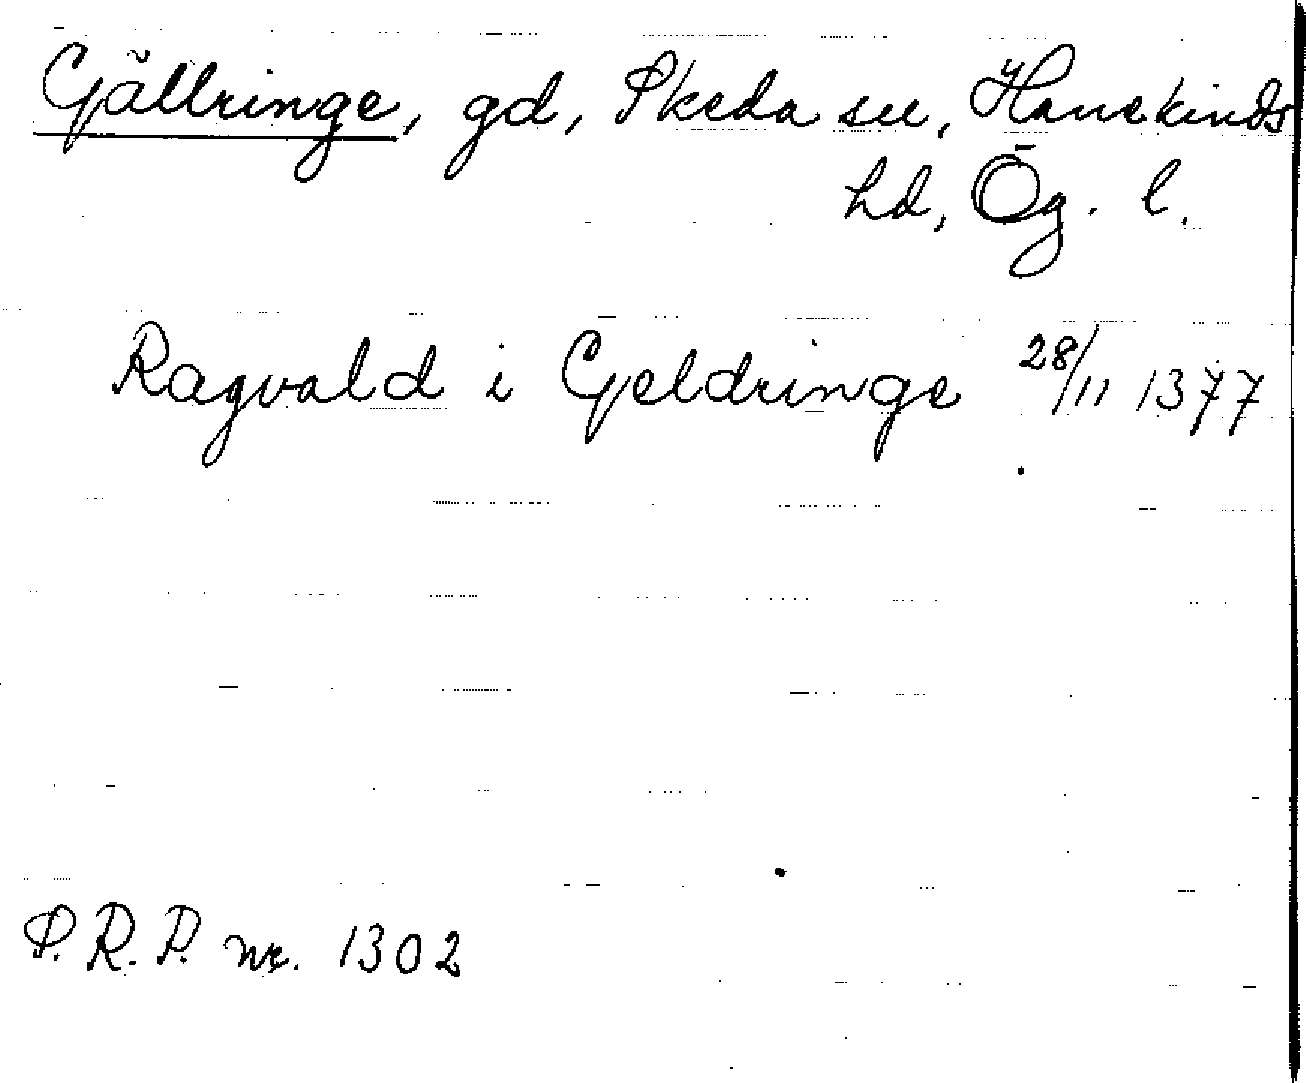 Gällringe, gd, Skeda sn, Hanekinds
hd, Ög. l.
Ragvald i Geldringe 28/11 1377
S.R.P. nr. 1302